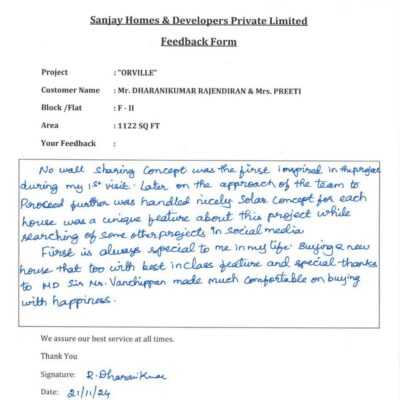 Sanjay Homes & Developers Private Limited
Feedback Form
Project : "ORVILLE"
Customer Name : Mr. DHARANIKUMAR RAJENDIRAN & Mrs. PREETI
Block /Flat : F - II
Area : 1122 SQ FT
Your Feedback :
No wall sharing concept was the first inspired in the project
during my 1st visit. Later on the approach of the team to
Proceed further was handled nicely Solar concept for each
house was a unique feature about this project while
searching of some other projects in social media.
First is always special to me in my life. Buying a new
house that too with best in class feature and special thanks
to MD Sir Mr. Vanchippan made much comfortable on buying
with happiness.
We assure our best service at all times.
Thank You
Signature: R. Dharanikumar
Date: 21/11/24